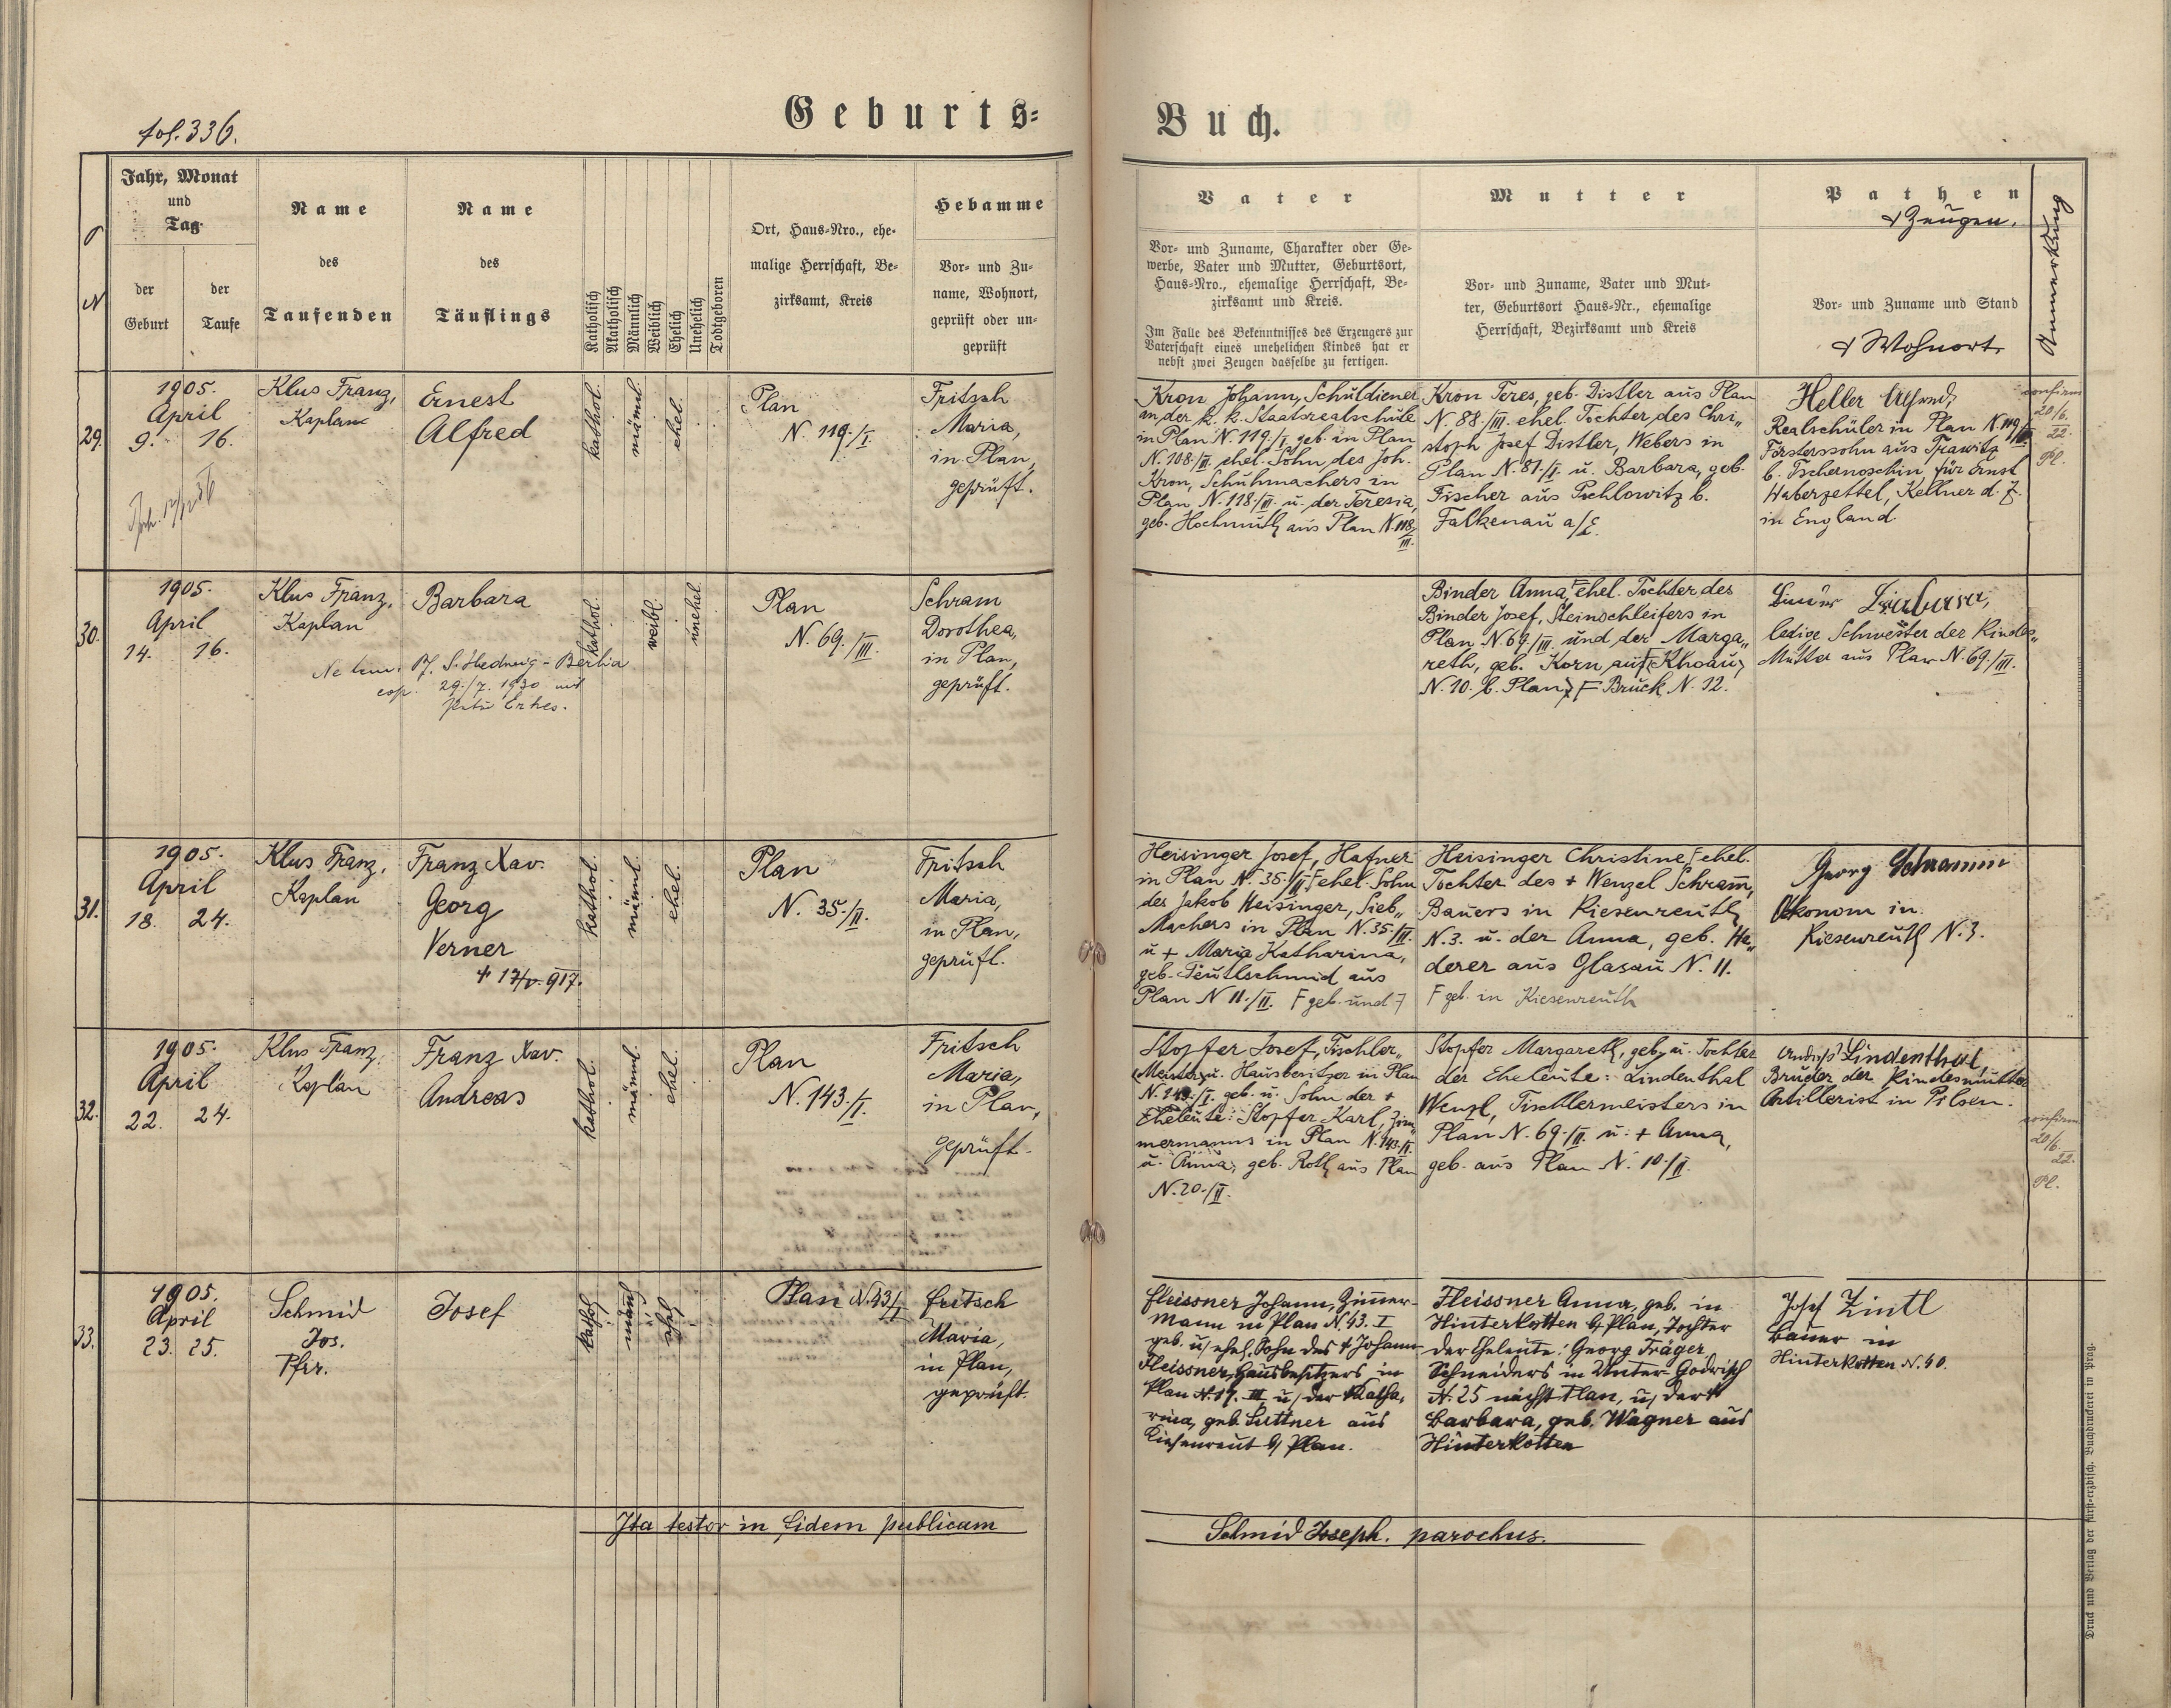 fol. 336.
Geburts=
Buch.
N
Jahr, Monat
und
Tag
der
Geburt
der
Taufe
Name
des
Taufenden
Name
des
Täuflings
Katholisch
Akatholisch
Männlich
Weiblich
Ehelich
Unehelich
Todtgeboren
Ort, Haus=Nro., ehe=
malige Herrschaft, Be=
zirksamt, Kreis
Hebamme
Vor= und Zu=
name, Wohnort,
geprüft oder un=
geprüft
Vater
Vor= und Zuname, Charakter oder Ge=
werbe, Vater und Mutter, Geburtsort,
Haus=Nro., ehemalige Herrschaft, Be=
zirksamt und Kreis.
Im Falle des Bekenntnisses des Erzeugers zur
Vaterschaft eines unehelichen Kindes hat er
nebst zwei Zeugen dasselbe zu fertigen.
Mutter
Vor= und Zuname, Vater und Mut=
ter, Geburtsort Haus=Nr., ehemalige
Herrschaft, Bezirksamt und Kreis
Pathen
& Zeugen.
Vor= und Zuname und Stand
& Wohnort.
Anmerkung
29.
1905.
April
9. 16.
Klus Franz,
Kaplan
Ernest
Alfred
kathol.
männl.
ehel.
Plan
N. 119./I.
Fritsch
Maria,
in Plan,
geprüft.
Kron Johann, Schuldiener
an der k. k. Staatsrealschule
in Plan N. 119./I. geb. in Plan
N. 108./III. ehel. Sohn des Joh.
Kron, Schuhmachers in
Plan N. 118/III. u. der Teresia,
geb. Hochmuth aus Plan N. 118/
III.
Kron Teres, geb. Distler aus Plan
N. 88./III. ehel. Tochter des Chri„
stoph Josef Distler, Webers in
Plan N. 81./I. u. Barbara, geb.
Fischer aus Pochlowitz b.
Falkenau a/E.
Heller
Realschüler in Plan N. 119/
Försterssohn aus
b. Tschernoschin für Ernst
Haberzettel, Kellner d. Z.
in England.
confirm
20/6.
22.
Pl.
30.
1905.
April
14. 16.
Klus Franz,
Kaplan
Barbara
S. Hedwig - Berlin
cop. 29./7. 1930 mit
kathol.
weibl.
unehel.
Plan
N. 69./III.
Schram
Dorothea,
in Plan,
geprüft.
Binder Anna, F ehel. Tochter des
Binder Josef, Steinschleifers in
Plan N. 69/III und der Marga„
reth, geb. Korn aus (Khoau,
N. 10. b. Plan) F Bruck N. 12.
Binder Barbara,
ledige Schwester der Kindes„
Mutter aus Plan N. 69./III.
31.
1905.
April
18. 24.
Klus Franz,
Kaplan
Franz Xav.
Georg
Verner
† 17/V. 917.
kathol.
männl.
ehel.
Plan
N. 35./II.
Fritsch
Maria,
in Plan,
geprüft.
Heisinger Josef, Hafner
in Plan N. 35./II F ehel. Sohn
des Jakob Heisinger, Sieb„
Machers in Plan N. 35./II.
u + Maria Katharina,
geb. Teutlschmid aus
Plan N 11./II. F geb. und 7
Heisinger Christine F ehel.
Tochter des + Wenzel Schram̄,
Bauers in Kiesenreuth
N. 3. u. der Anna, geb. He„
derer aus Glasau N. 11.
F geb. in Kiesenreuth
Georg Schramm
Ökonom in
Kiesenreuth N. 3.
32.
1905.
April
22. 24.
Klus Franz,
Kaplan
Franz Xav.
Andreas
kathol.
männl.
ehel.
Plan
N. 143./I.
Fritsch
Maria,
in Plan,
geprüft.
Stopfer Josef, Tischler„
Meister u. Hausbesitzer in Plan
N. 143./I. geb. u. Sohn der +
Eheleute: Stopfer Karl, Zim„
mermanns in Plan N. 143./I.
u. Anna, geb. Roth aus Plan
N. 20./II.
Stopfer Margareth, geb. u. Tochter
der Eheleute: Lindenthal
Wenzl, Tischlermeisters in
Plan N. 69./II. u. + Anna,
geb. aus Plan N. 10./II.
Lindenthal,
Bruder der Kindesmutter
Artillerist in Pilsen.
confirm
20/6.
22.
Pl.
33.
1905.
April
23. 25.
Schmid
Jos.
Pfr.
Josef
kath.
män̄l.
ehel.
Plan N. 43/I
Fritsch
Maria,
in Plan,
geprüft.
Fleissner Johann, Zim̄er-
mann in Plan N. 43. I
geb. u. ehel. Sohn des † Johann
Fleissner, Hausbesitzers in
Plan N. 17. III u. der Katha-
rina, geb. Suttner aus
Kiesenreut b/ Plan.
Fleissner Anna, geb. in
Hinterkotten b/ Plan, Tochter
der Eheleute: Georg Träger,
Schneiders in Unter-Godrisch
N. 25 nächst Plan, u. der †
Barbara, geb. Wagner aus
Hinterkotten
Josef Zintl
Bauer in
Hinterkotten N. 40.
Ita testor in fidem publicam
Schmid Joseph. parochus.
Druck und Verlag der fürst=erzbisch. Buchdruckerei in Prag.